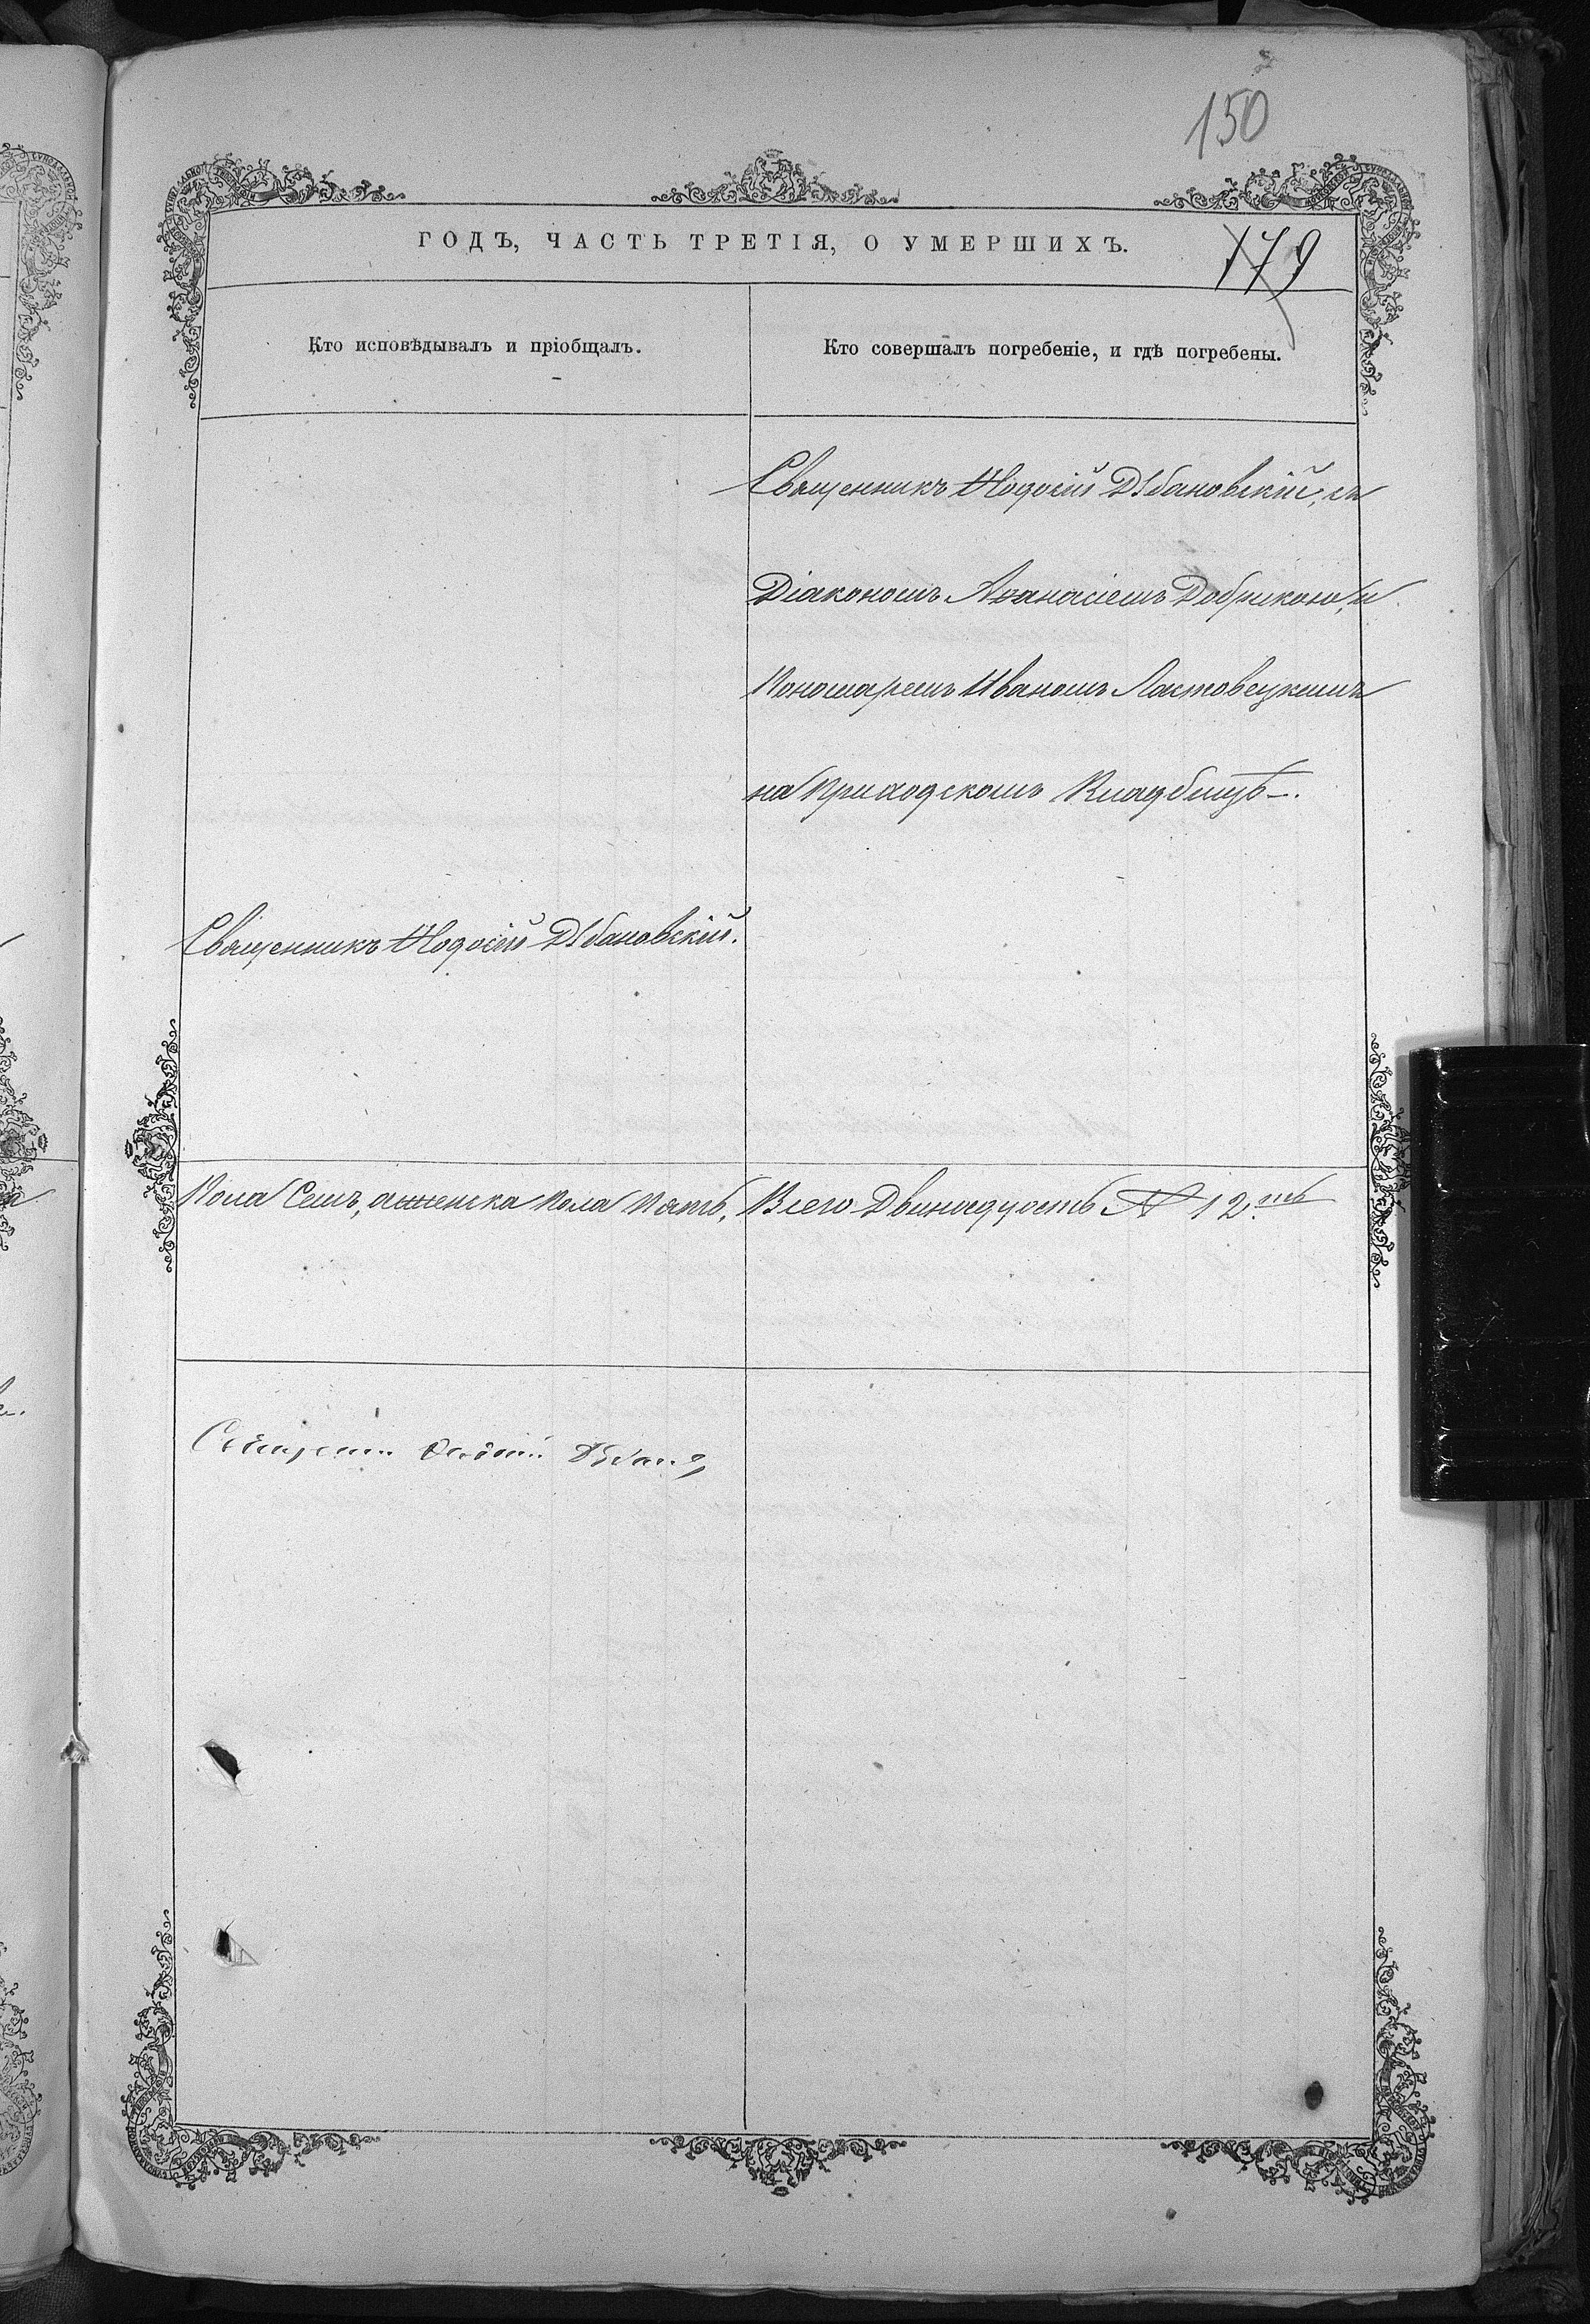 150
ГОДЪ, ЧАСТЬ ТРЕТІЯ, О УМЕРШИХЪ.
179
Кто исповѣдывалъ и пріобщалъ.
Кто совершалъ погребеніе, и гдѣ погребены.
Священникъ Ѳеодосій Дѣбановскій, съ
Діакономъ Аѳанасіемъ Добрикою, и
Пономаремъ Иваномъ Ластовецкимъ
на Приходскомъ Кладбищѣ.
Священникъ Ѳеодосій Дѣбановскій.
Пола Семь, а женска Пола Пять, Всего Двинадцять № 12.ть